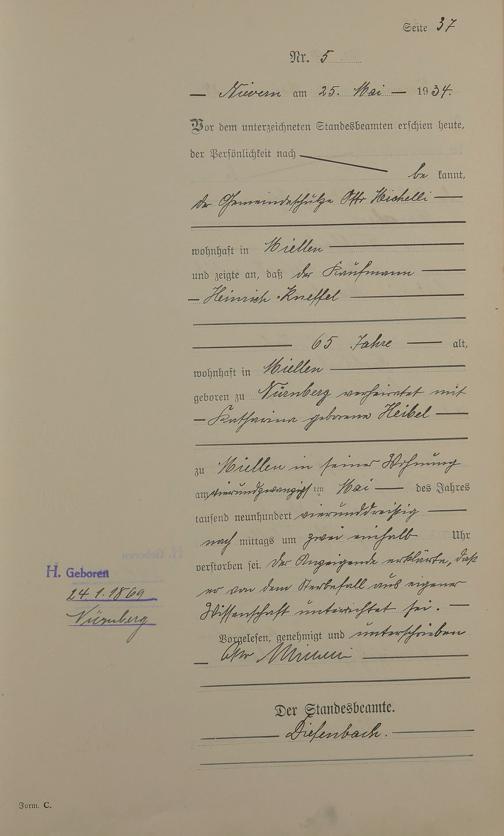 Seite 37
Nr. 5
Nievern am 25. Mai 1934.
Vor dem unterzeichneten Standesbeamten erschien heute,
der Persönlichkeit nach
be kannt,
der Gemeindeschütze Otto Michelli
wohnhaft in Miellen
und zeigte an, daß der Kaufmann
Heinrich Kneffel
65 Jahre alt,
wohnhaft in Miellen
geboren zu Nürnberg verheiratet mit
Katharina geborene Heibel
zu Miellen in seiner Wohnung
am vierundzwanzigsten Mai des Jahres
tausend neunhundert vierunddreißig
nach mittags um zwei einhalb Uhr
verstorben sei. Der Anzeigende erklärte, daß
er von dem Sterbefall aus eigener
Wissenschaft unterrichtet sei.
Vorgelesen, genehmigt und unterschrieben
Otto Michelli
Der Standesbeamte.
Diefenbach.
H. Geboren
24.1.1869
Nürnberg
Form. C.